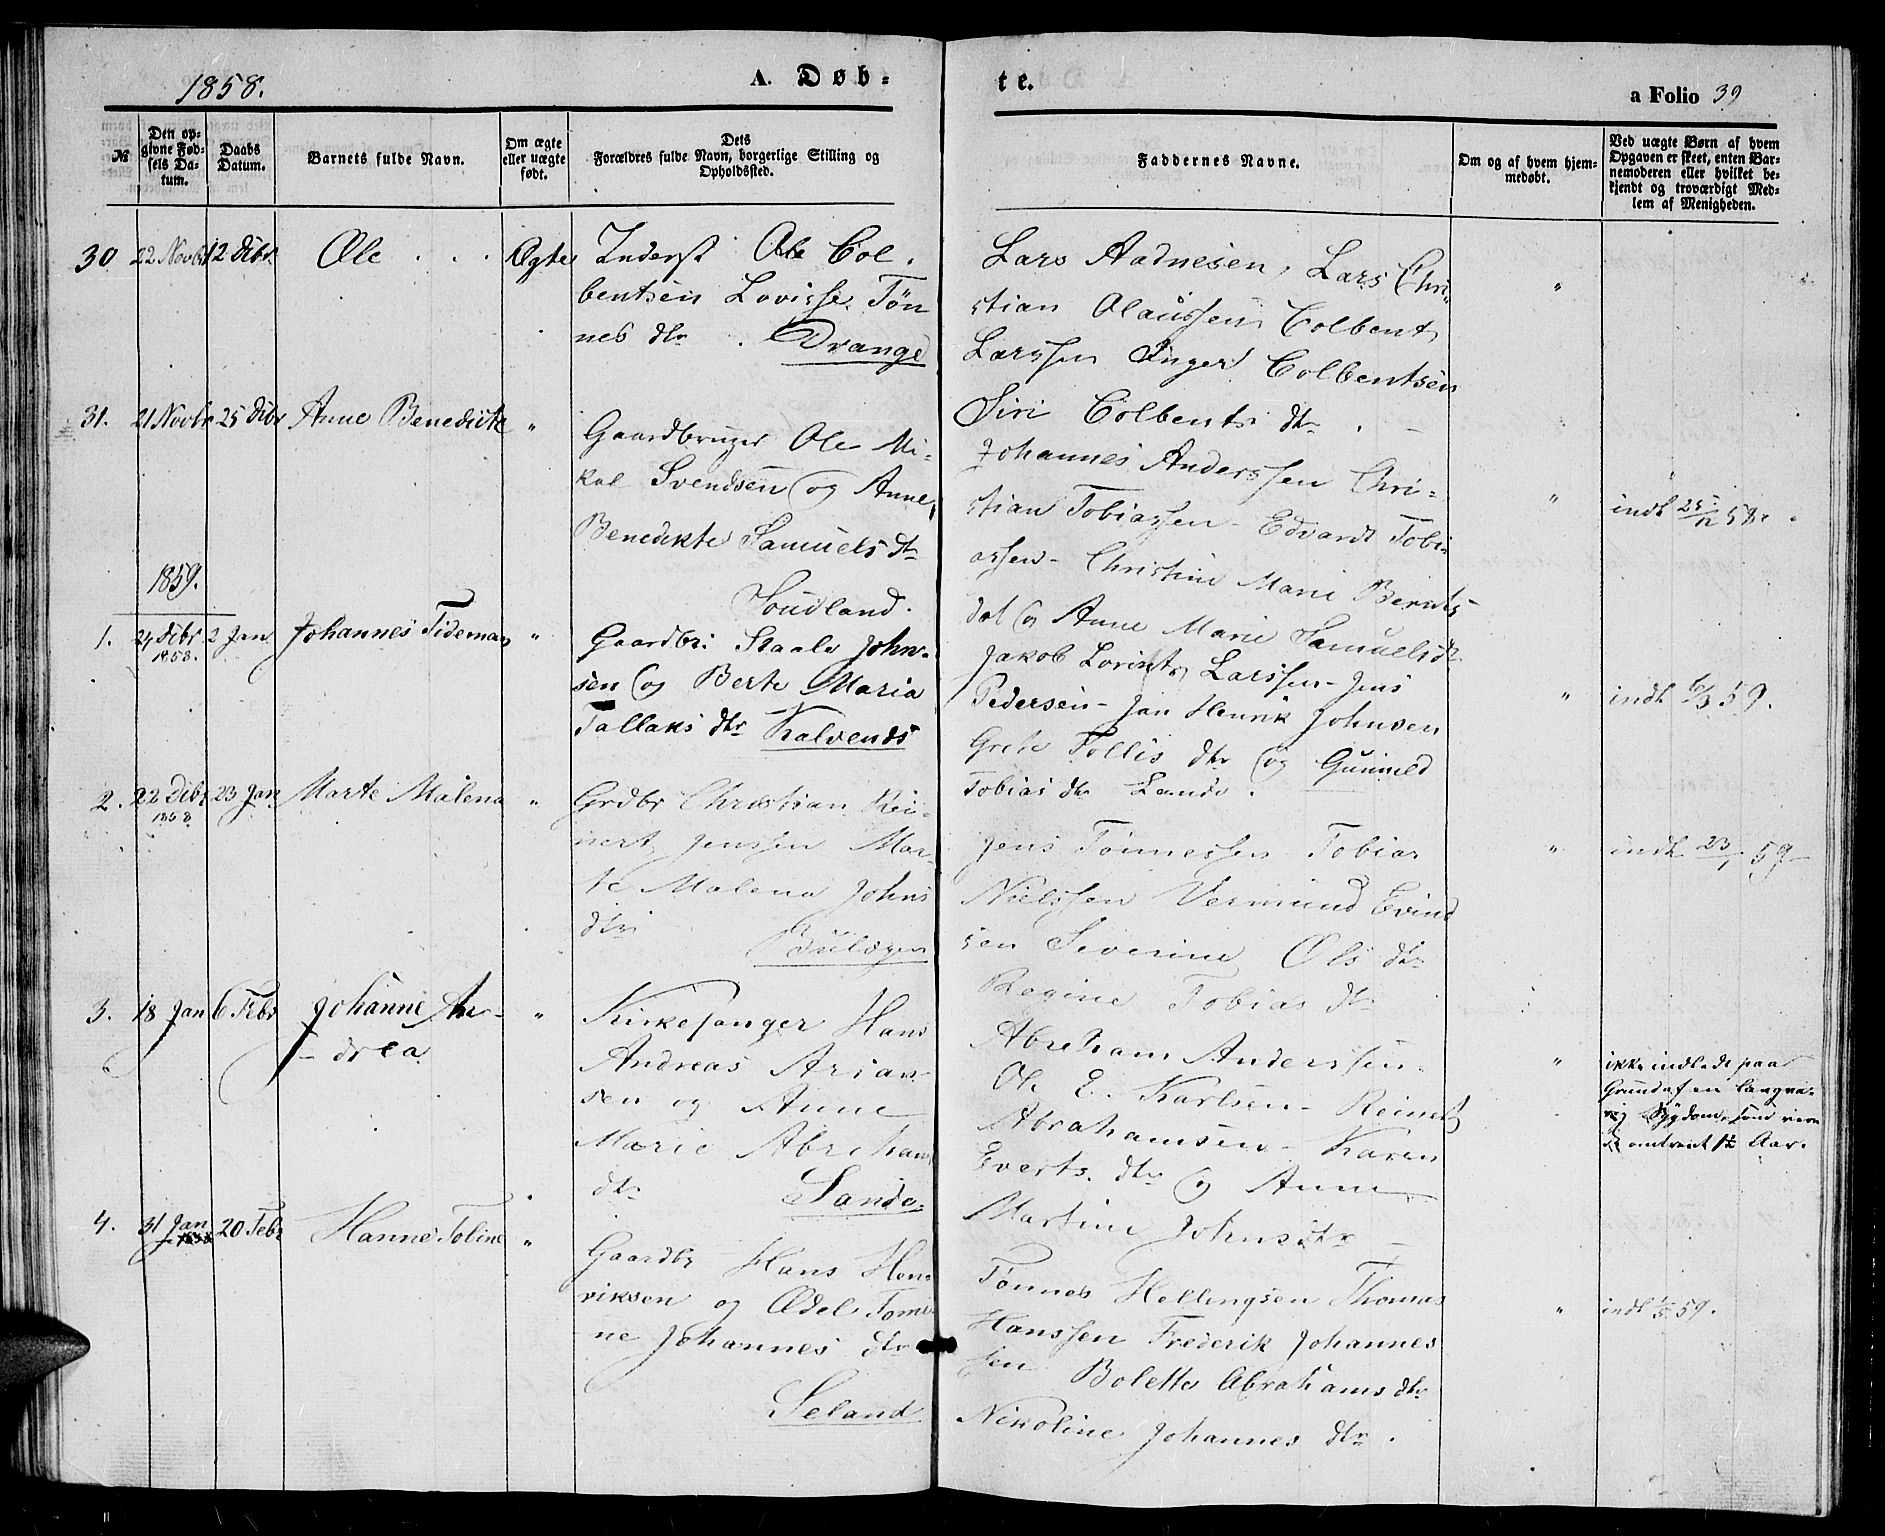 1858.
A. Døb-
te.
a Folio 39
№
Den op-
givne Fød-
sels Da-
tum.
Daabs
Datum.
Barnets fulde Navn.
Om ægte
eller uægte
født.
Dets
Forældres fulde Navn, borgerlige Stilling og
Opholdssted.
Faddernes Navne.
Om og af hvem hjem-
medøbt.
Ved uægte Børn af hvem
Opgaven er skeet, enten Bar-
nemoderen eller hvilket be-
kjendt og troværdigt Med-
lem af Menigheden.
30 22 Novbr 12 Dibr. Ole . . . Ægte
Inderst Ole Col-
bentsen Lovisse Tön
nes dtr . Drange
Lars Aadnesen, Lars Chri-
stian Olaussen Colbent
Larssen Inger Colbentsen
Siri Colbents dtr . -
"
31. 21 Novbr 25 Dibr Anne Benedicte "
Gaardbruger Ole Mi-
kal Svendsen og Anne
Benedikte Samuels dtr
Houdland.
Johannes Anderssen Chri-
stian Tobiassen - Edvardt Tobi
assen - Christine Marie Bernts
dat og Anne Marie Samuels dtr
" indl 25/12 58.
1859.
1. 24 Dibr 1858. 2 Jan Johannes Tideman "
Gaardbr: Staale John-
sen og Berte Maria
Tallaks dtr Kalvends
Jakob Lorents Larssen - Jens
Pedersen - Jan Henrik Johnsen
Grete Tollis dtr og Gunneld
Tobias dtr Lande .
" indl 6/3 59.
2. 22 Dibr 1858 23 Jan Marte Malena "
Grdbr Christian Rei-
nert Jenssen Mar-
te Malena Johns
dtr
Jens Tönnessen - Tobias
Nielssen Vermund Evind
sen Severine Ols dtr
Regine Tobias dtr
" indl 23/1 59-
3. 18 Jan 6 Febr Johanne An- "
- drea
Kirkesanger Hans
Andreas Arian-
sen og Anne
Marie Abreham
dtr Sande.
Abreham Anderssen
Ole E. Karlsen - Reinert
Abrahamsen - Karen
Everts. dtr og Anne
Martine Johns dtr -
" ikke indledt paa
Grund af en langva-
rig Sygdom, som
omtrent 1½ Aar.
4. 31 Jan 20 Febr Hanne Toline "
Gaardbr Hans Hen-
riksen og Ædel Tomi
ne Johannes dtr
Seland
Tönnes Hellingsen Thomas
Hanssen Frederik Johannes
sen Bolette Abrahams dtr
Nikoline Johannes dtr .
" indl 1/5 59.